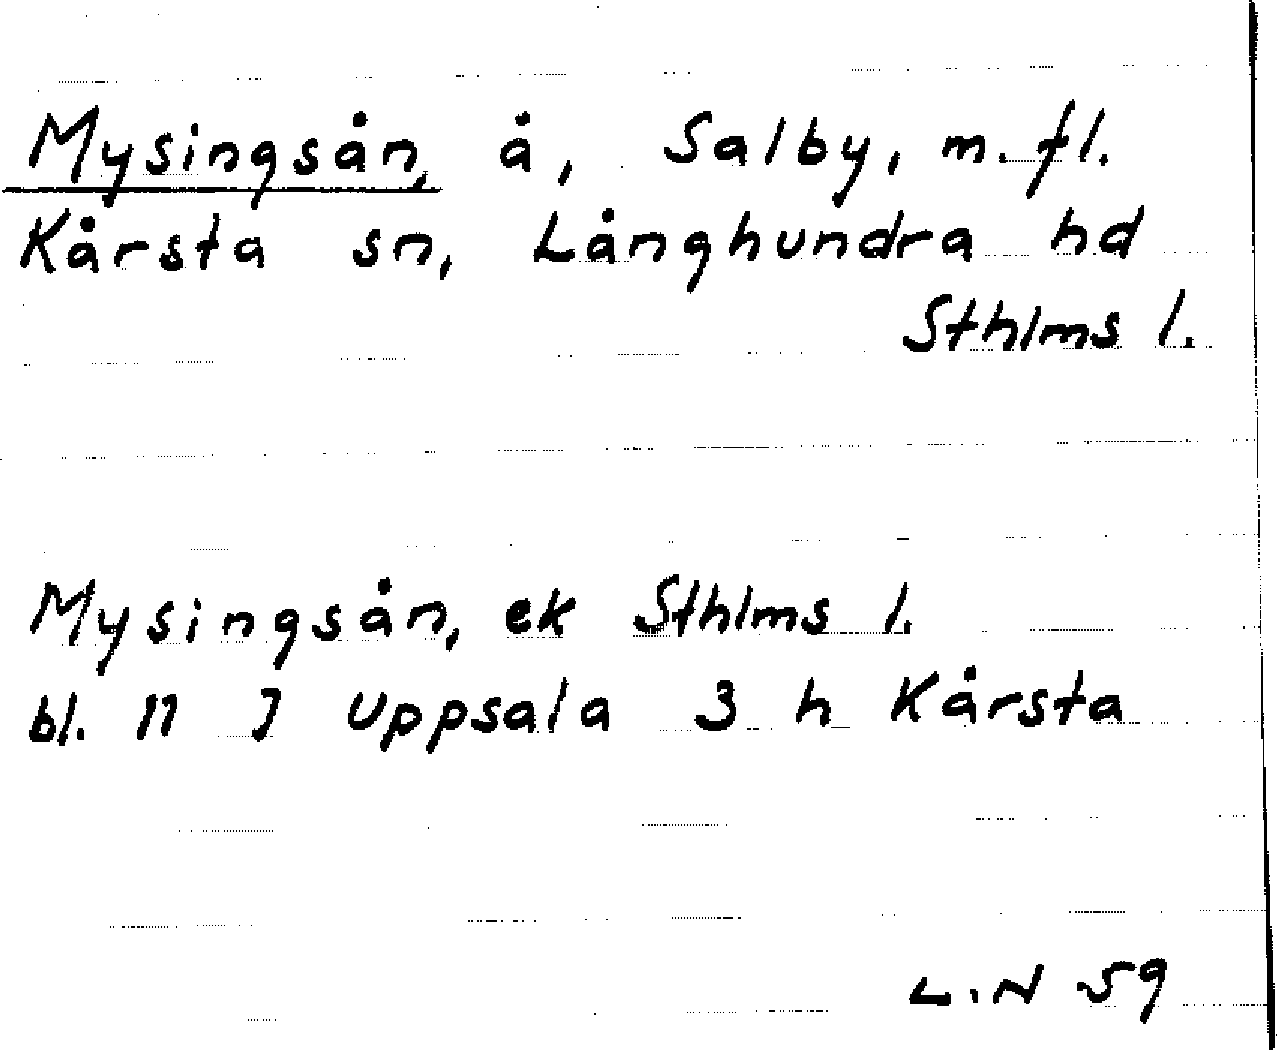 Mysingsån, å, Salby, m.fl.
Kårsta sn, Långhundra hd
Sthlms l.
Mysingsån, ek Sthlms l.
bl. 11 I Uppsala 3 h Kårsta
L.N 59